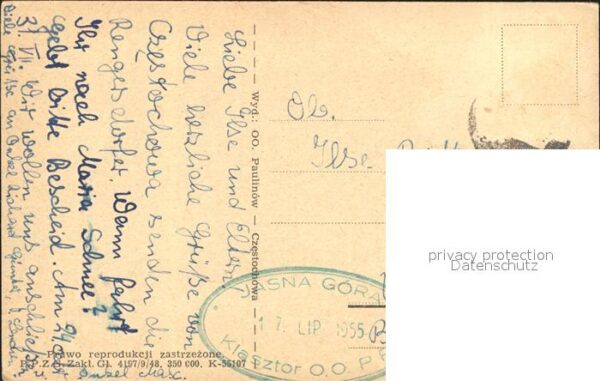 Liebe Ilse und Eltern
Viele herzliche Grüße von
Częstochowa senden die
Rengersdorfer. Wann fahrt
Ihr nach Maria Schnee?
gebt bitte Bescheid. Am
31. VII. Wir wollen uns anschließen
Viele Grüße an Onkel
Onkel Max.
Wyd.: OO. Paulinów — Częstochowa
Ob.
Ilse
privacy protection
Datenschutz
JASNA GÓRA
17. LIP. 1955
Klasztor O.O. P
Prawo reprodukcji zastrzeżone.
P.P.Z.G. Zakł. Gł. 4197/9/48. 350 000. K-55107